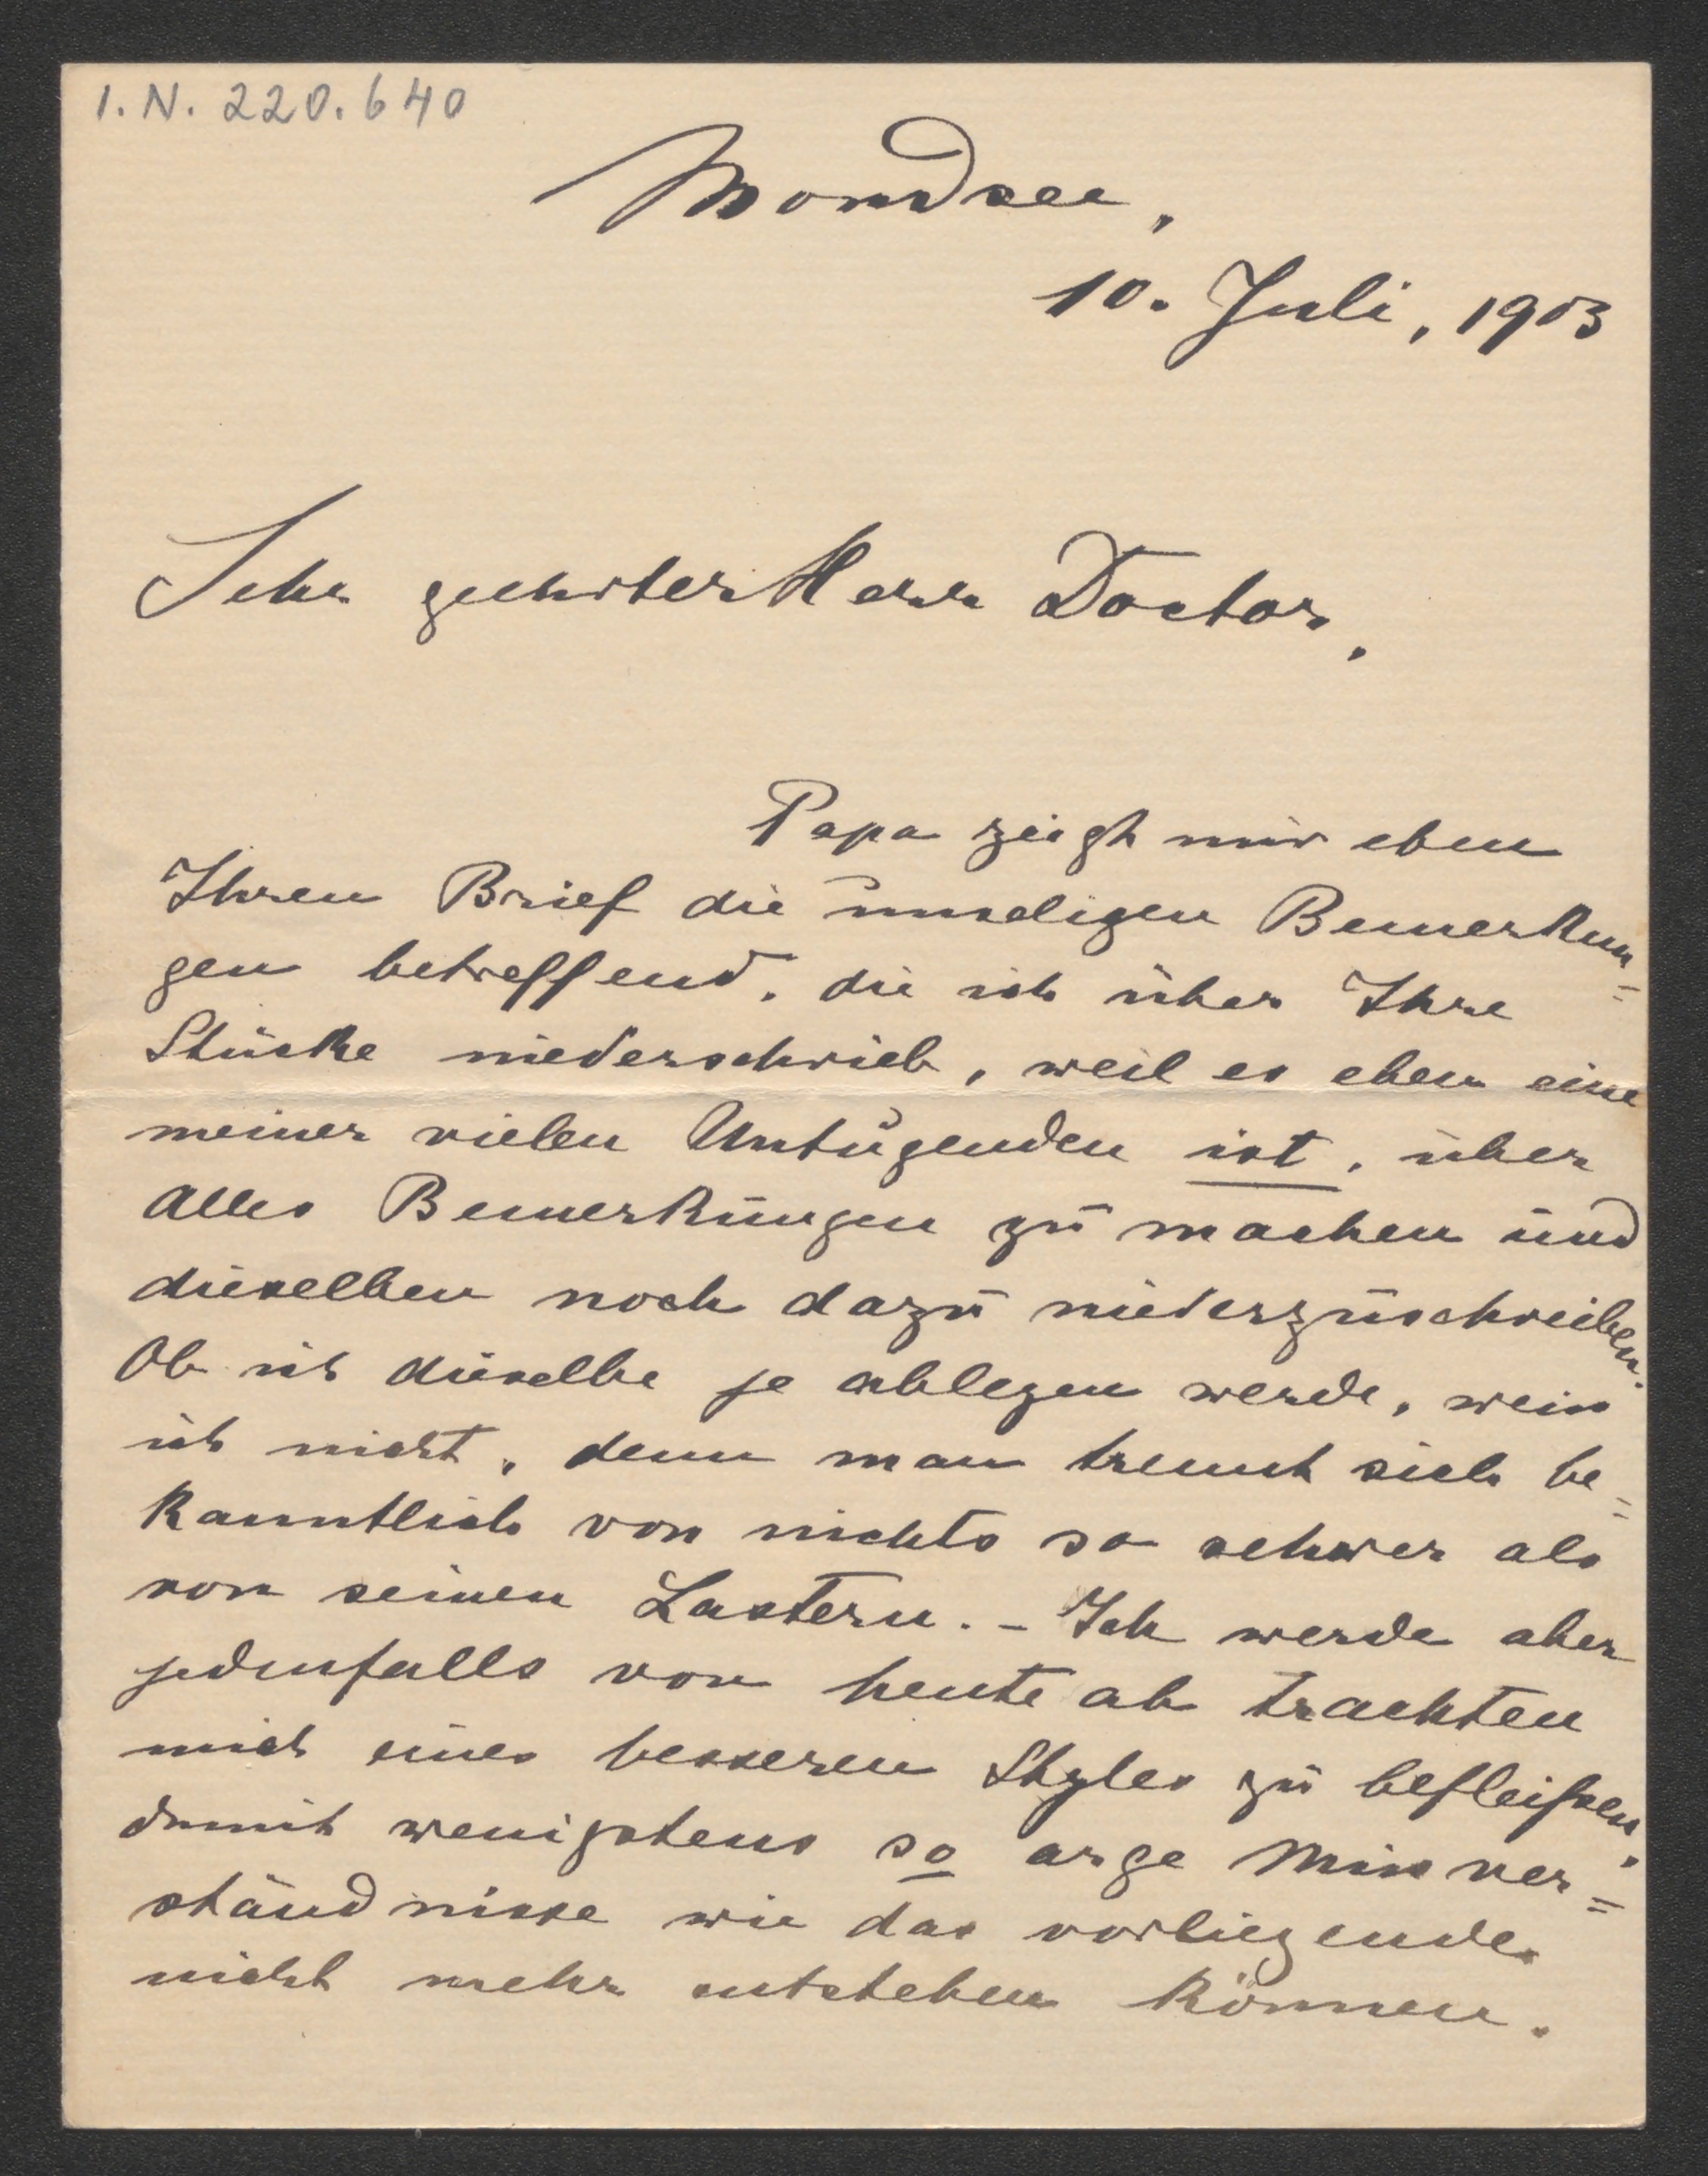 I.N. 220.640
Mondsee,
10. Juli, 1903
Sehr geehrter Herr Doctor,
Papa zeigt mir eben
Ihren Brief die unseligen Bemerkun=
gen betreffend, die ich über Ihre
Stücke niederschrieb, weil es eben eine
meiner vielen Untugenden ist, über
alles Bemerkungen zu machen und
dieselben noch dazu niederzuschreiben.
Ob ich dieselbe je ablegen werde, weiss
ich nicht, denn man trennt sich be=
kanntlich von nichts so schwer als
von seinen Lastern. – Ich werde aber
jedenfalls von heute ab trachten
mich eines besseren Styles zu befleißen,
damit wenigstens so arge Missver=
ständnisse wie das vorliegende
nicht mehr entstehen können.